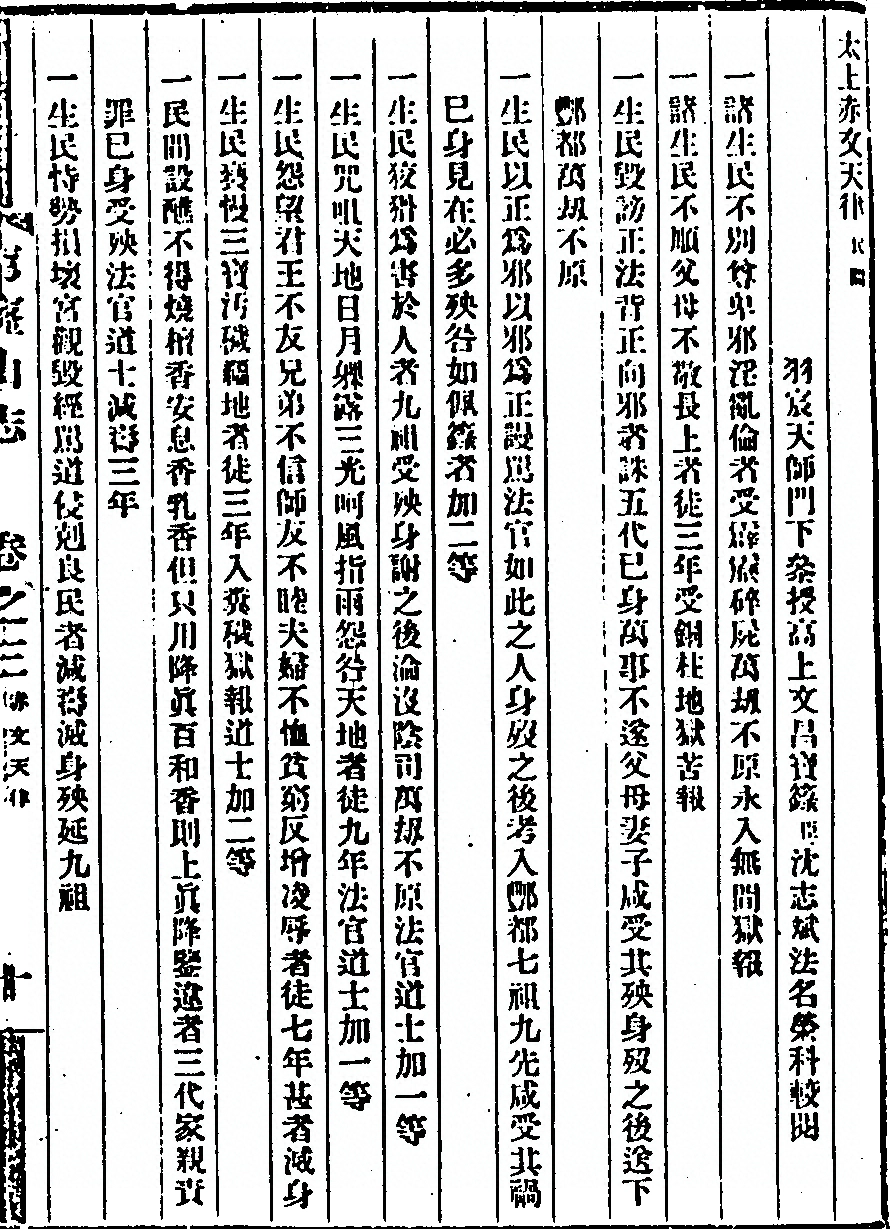 太上赤文天律 民
羽宸天師門下叅授高上文昌寶籙臣沈志斌法名榮科較閱
一諸生民不別尊卑邪淫亂倫者受霹靂碎屍萬刼不原永入無間獄報
一諸生民不順父母不敬長上者徒三年受銅柱地獄苦報
一生民毀謗正法背正向邪者誅五代巳身萬事不遂父母妻子咸受其殃身歿之後送下
酆都萬刼不原
一生民以正爲邪以邪爲正謾罵法官如此之人身歿之後考入酆都七祖九先咸受其禍
巳身見在必多殃咎如佩籙者加二等
一生民狡猾爲害於人者九祖受殃身謝之後淪沒陰司萬刼不原法官道士加一等
一生民咒咀天地日月躶露三光呵風指雨怨咎天地者徒九年法官道士加一等
一生民怨望君王不友兄弟不信師友不睦夫婦不恤貧窮反增凌辱者徒七年甚者滅身
一生民褻慢三寶汚穢福地者徒三年入糞穢獄報道士加二等
一民間設醮不得燒檀香安息香乳香但只用降眞百和香則上眞降鑒違者三代家親責
罪巳身受殃法官道士減壽三年
一生民恃勢損壞宮觀毀經罵道侵剋良民者減壽滅身殃延九祖
山志 卷之十二 赤文天律 十